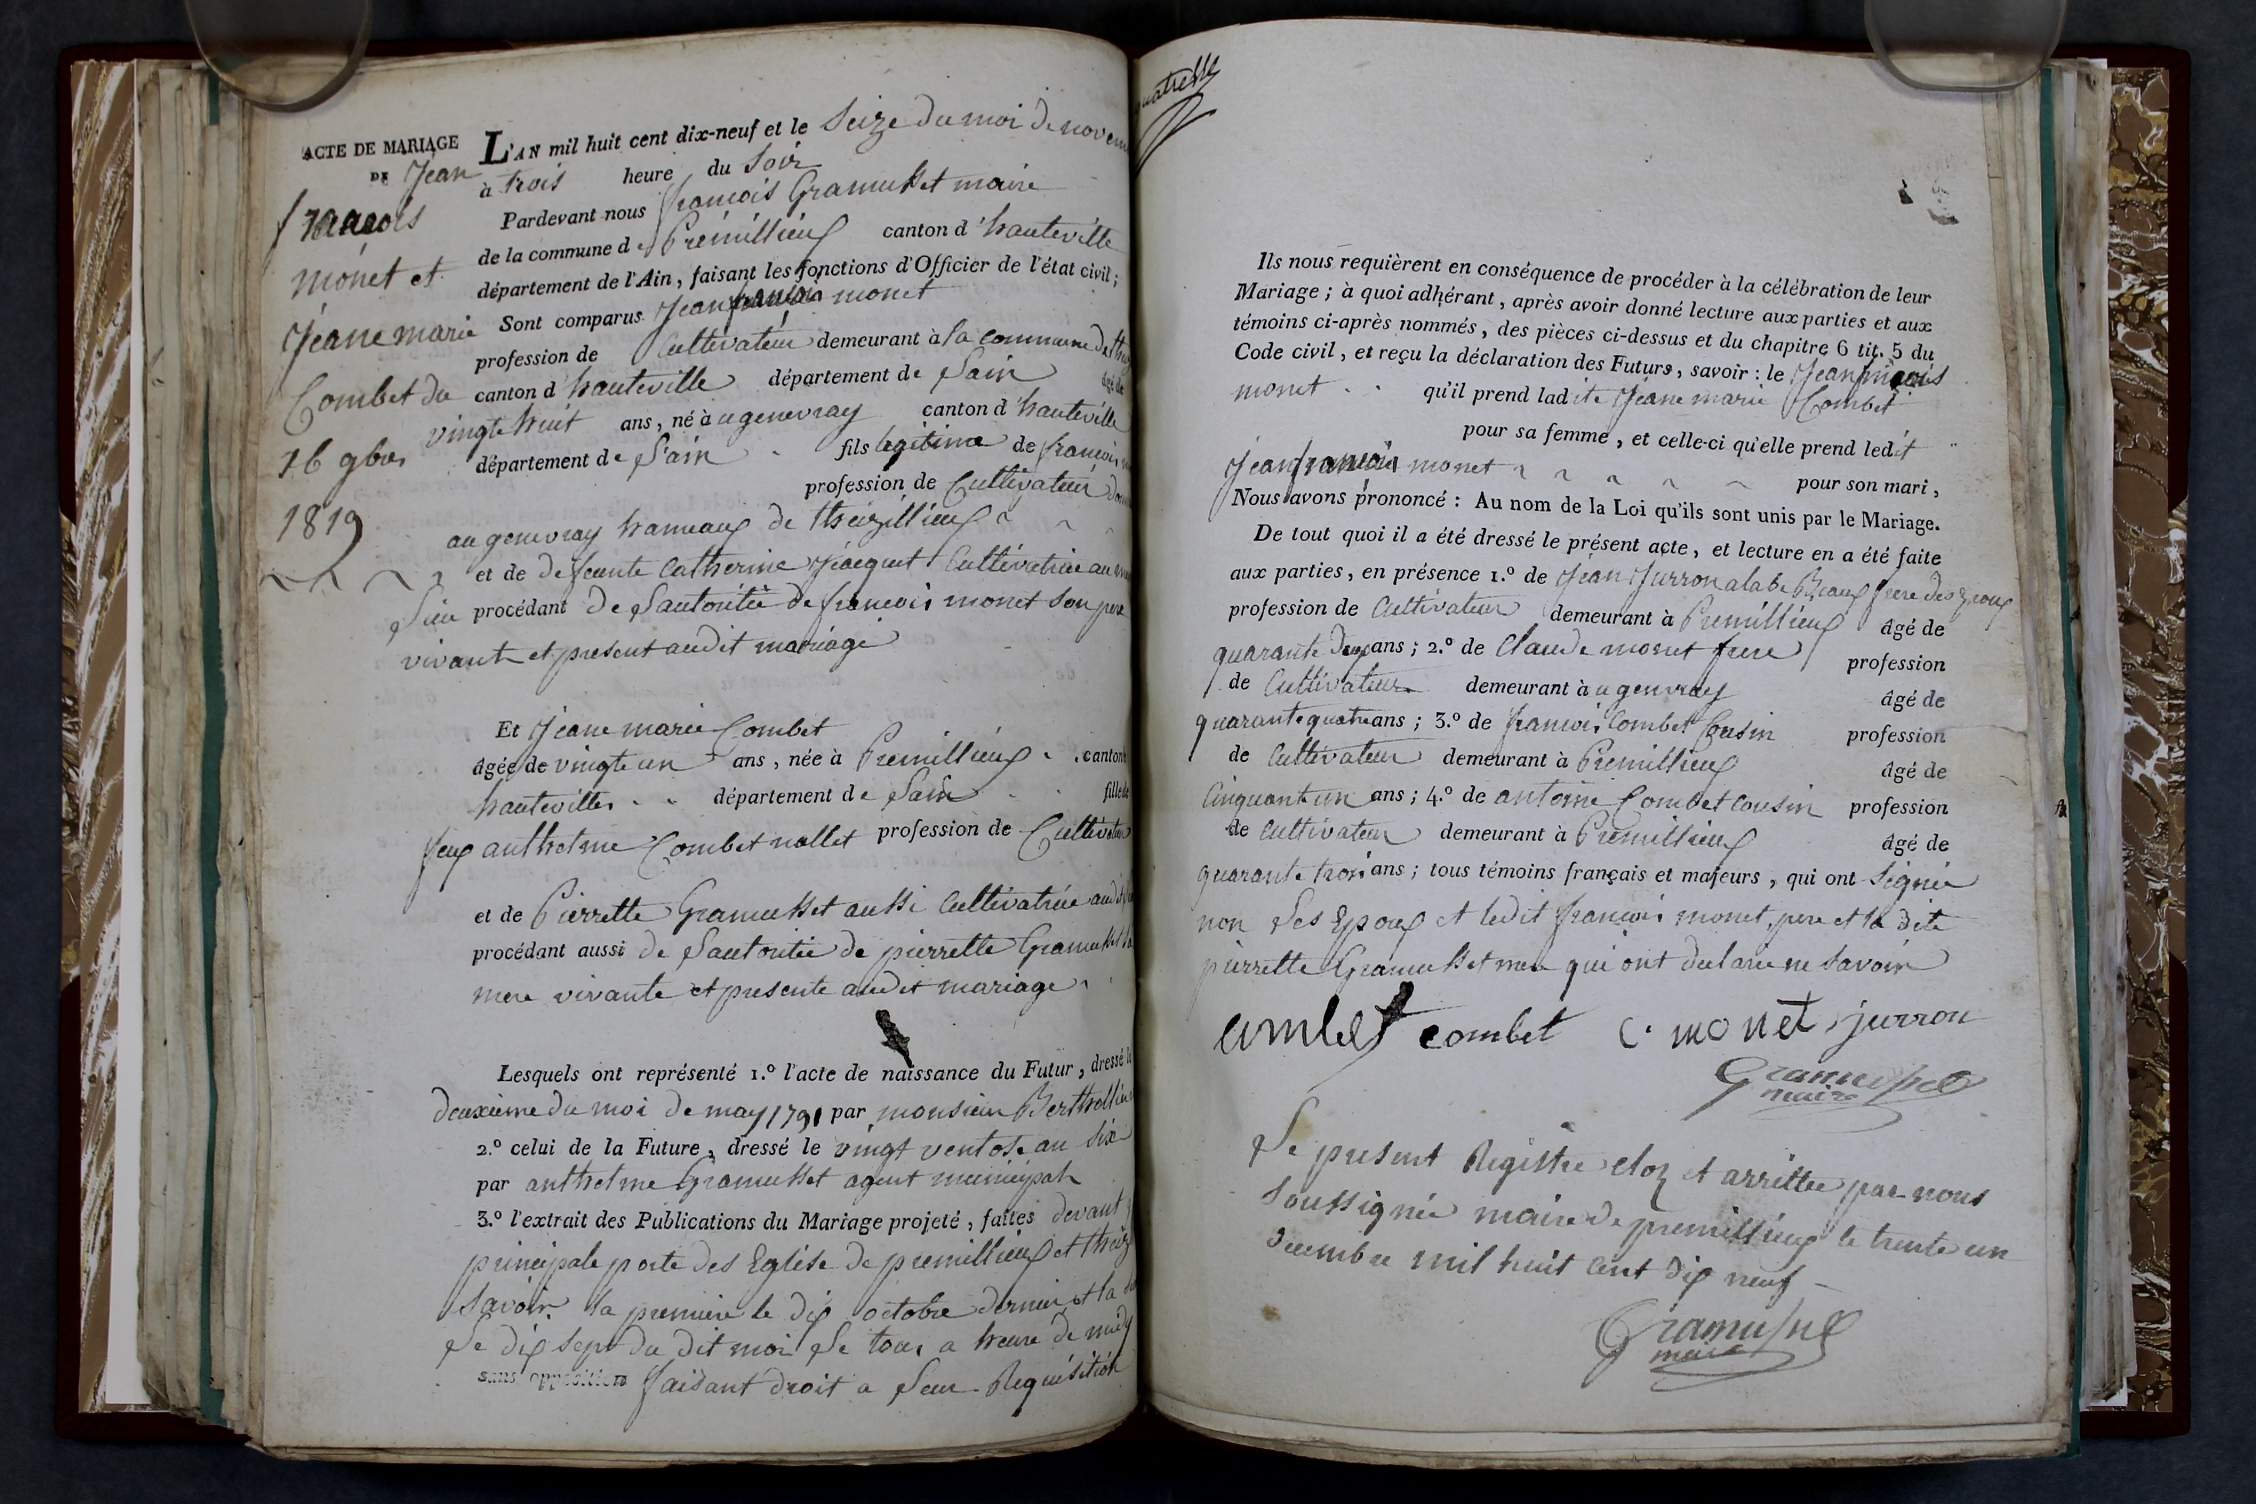 ACTE DE MARIAGE
DE Jean
francois
monet et
Jeane marie
Combet du
16 9bre
1819
L'AN mil huit cent dix-neuf et le Seize du moi de novem
à trois heure du Soir
Pardevant nous francois Gramusset maire
de la commune de Prémillieux canton d'hauteville
département de l'Ain, faisant les fonctions d'Officier de l'état civil;
Sont comparus Jean francois monet
profession de Cultivateur demeurant à la commune de
canton d'hauteville département de Lain âgé de
vingt huit ans, né à ugenevray canton d'hauteville
département de L'ain fils legitime de francois
profession de Cultivateur
au genevray hameaux de theizillieux
et de defeunte Catherine Jacquet Cultivatrice au
Lieu procédant de Lautoritée de francois monet son pere
vivant et present audit mariage
Et Jeane marie Combet
âgée de vingt un ans, née à Premillieux canton
hauteville département de Lain fille de
feux anthelme Combet nallet profession de Cultivateur
et de Pierrette Gramusset aussi Cultivatrice audit
procédant aussi de Lautoritée de pierrette Gramusset sa
mere vivante et presente audit mariage
Lesquels ont représenté 1.º l'acte de naissance du Futur, dressé le
deuxieme du moi de may 1791 par monsieur
2.º celui de la Future, dressé le vingt ventose an six
par anthelme Gramusset agent municipal
3.º l'extrait des Publications du Mariage projeté, faites devant
principale porte des Eglise de premillieux et
Savoir la premiere le dix octobre dernier et la
Le dix sept du dit moi Le tous a heure de midy
sans opposition faisant droit a Leur Requisition
Ils nous requièrent en conséquence de procéder à la célébration de leur
Mariage; à quoi adhérant, après avoir donné lecture aux parties et aux
témoins ci-après nommés, des pièces ci-dessus et du chapitre 6 tit. 5 du
Code civil, et reçu la déclaration des Futurs, savoir: le Jean francois
monet qu'il prend ladite Jeane marie Combet
pour sa femme, et celle-ci qu'elle prend ledit
Jean francois monet pour son mari,
Nous avons prononcé: Au nom de la Loi qu'ils sont unis par le Mariage.
De tout quoi il a été dressé le présent acte, et lecture en a été faite
aux parties, en présence 1.º de Jean Jurron Beaux frere des Epoux
profession de Cultivateur demeurant à Premillieux âgé de
quarante deux ans; 2.º de Claude monet frere profession
de Cultivateur demeurant à ugenvray âgé de
quarante quatre ans; 3.º de francois Combet Cousin profession
de Cultivateur demeurant à Premillieux âgé de
Cinquante un ans; 4.º de antoine Combet Cousin profession
de Cultivateur demeurant à Premillieux âgé de
quarante trois ans; tous témoins français et majeurs, qui ont Signée
non Les Epoux et ledit francois monet pere et la dite
pierrette Gramusset mere qui ont declarée ne Savoir
combet combet C. monet jurron
Gramusset
maire
Le present Registre cloz et arrettee par nous
Soussignée maire de premillieux le trente un
decembre mil huit cent dix neuf
Gramusset
maire